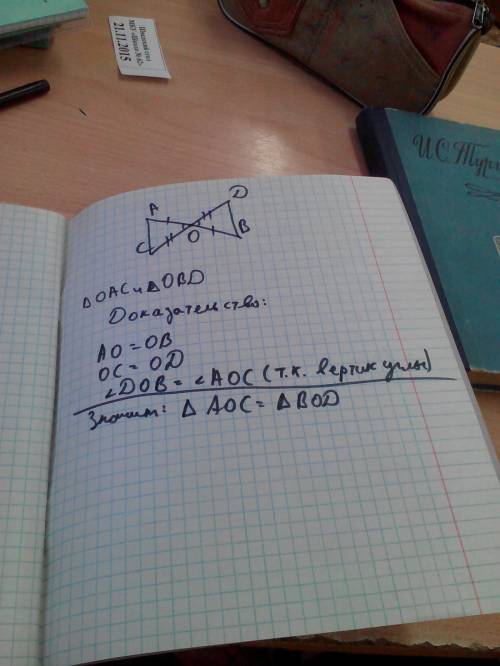 Школьный стол
МБУ «Школа №62»
21.11.2015
И.С. Тург
A
D
C
O
B
△OAC и △OBD
Доказательство:
AO = OB
OC = OD
∠DOB = ∠AOC (т.к. вертик углы)
Значит: △ AOC = △ BOD